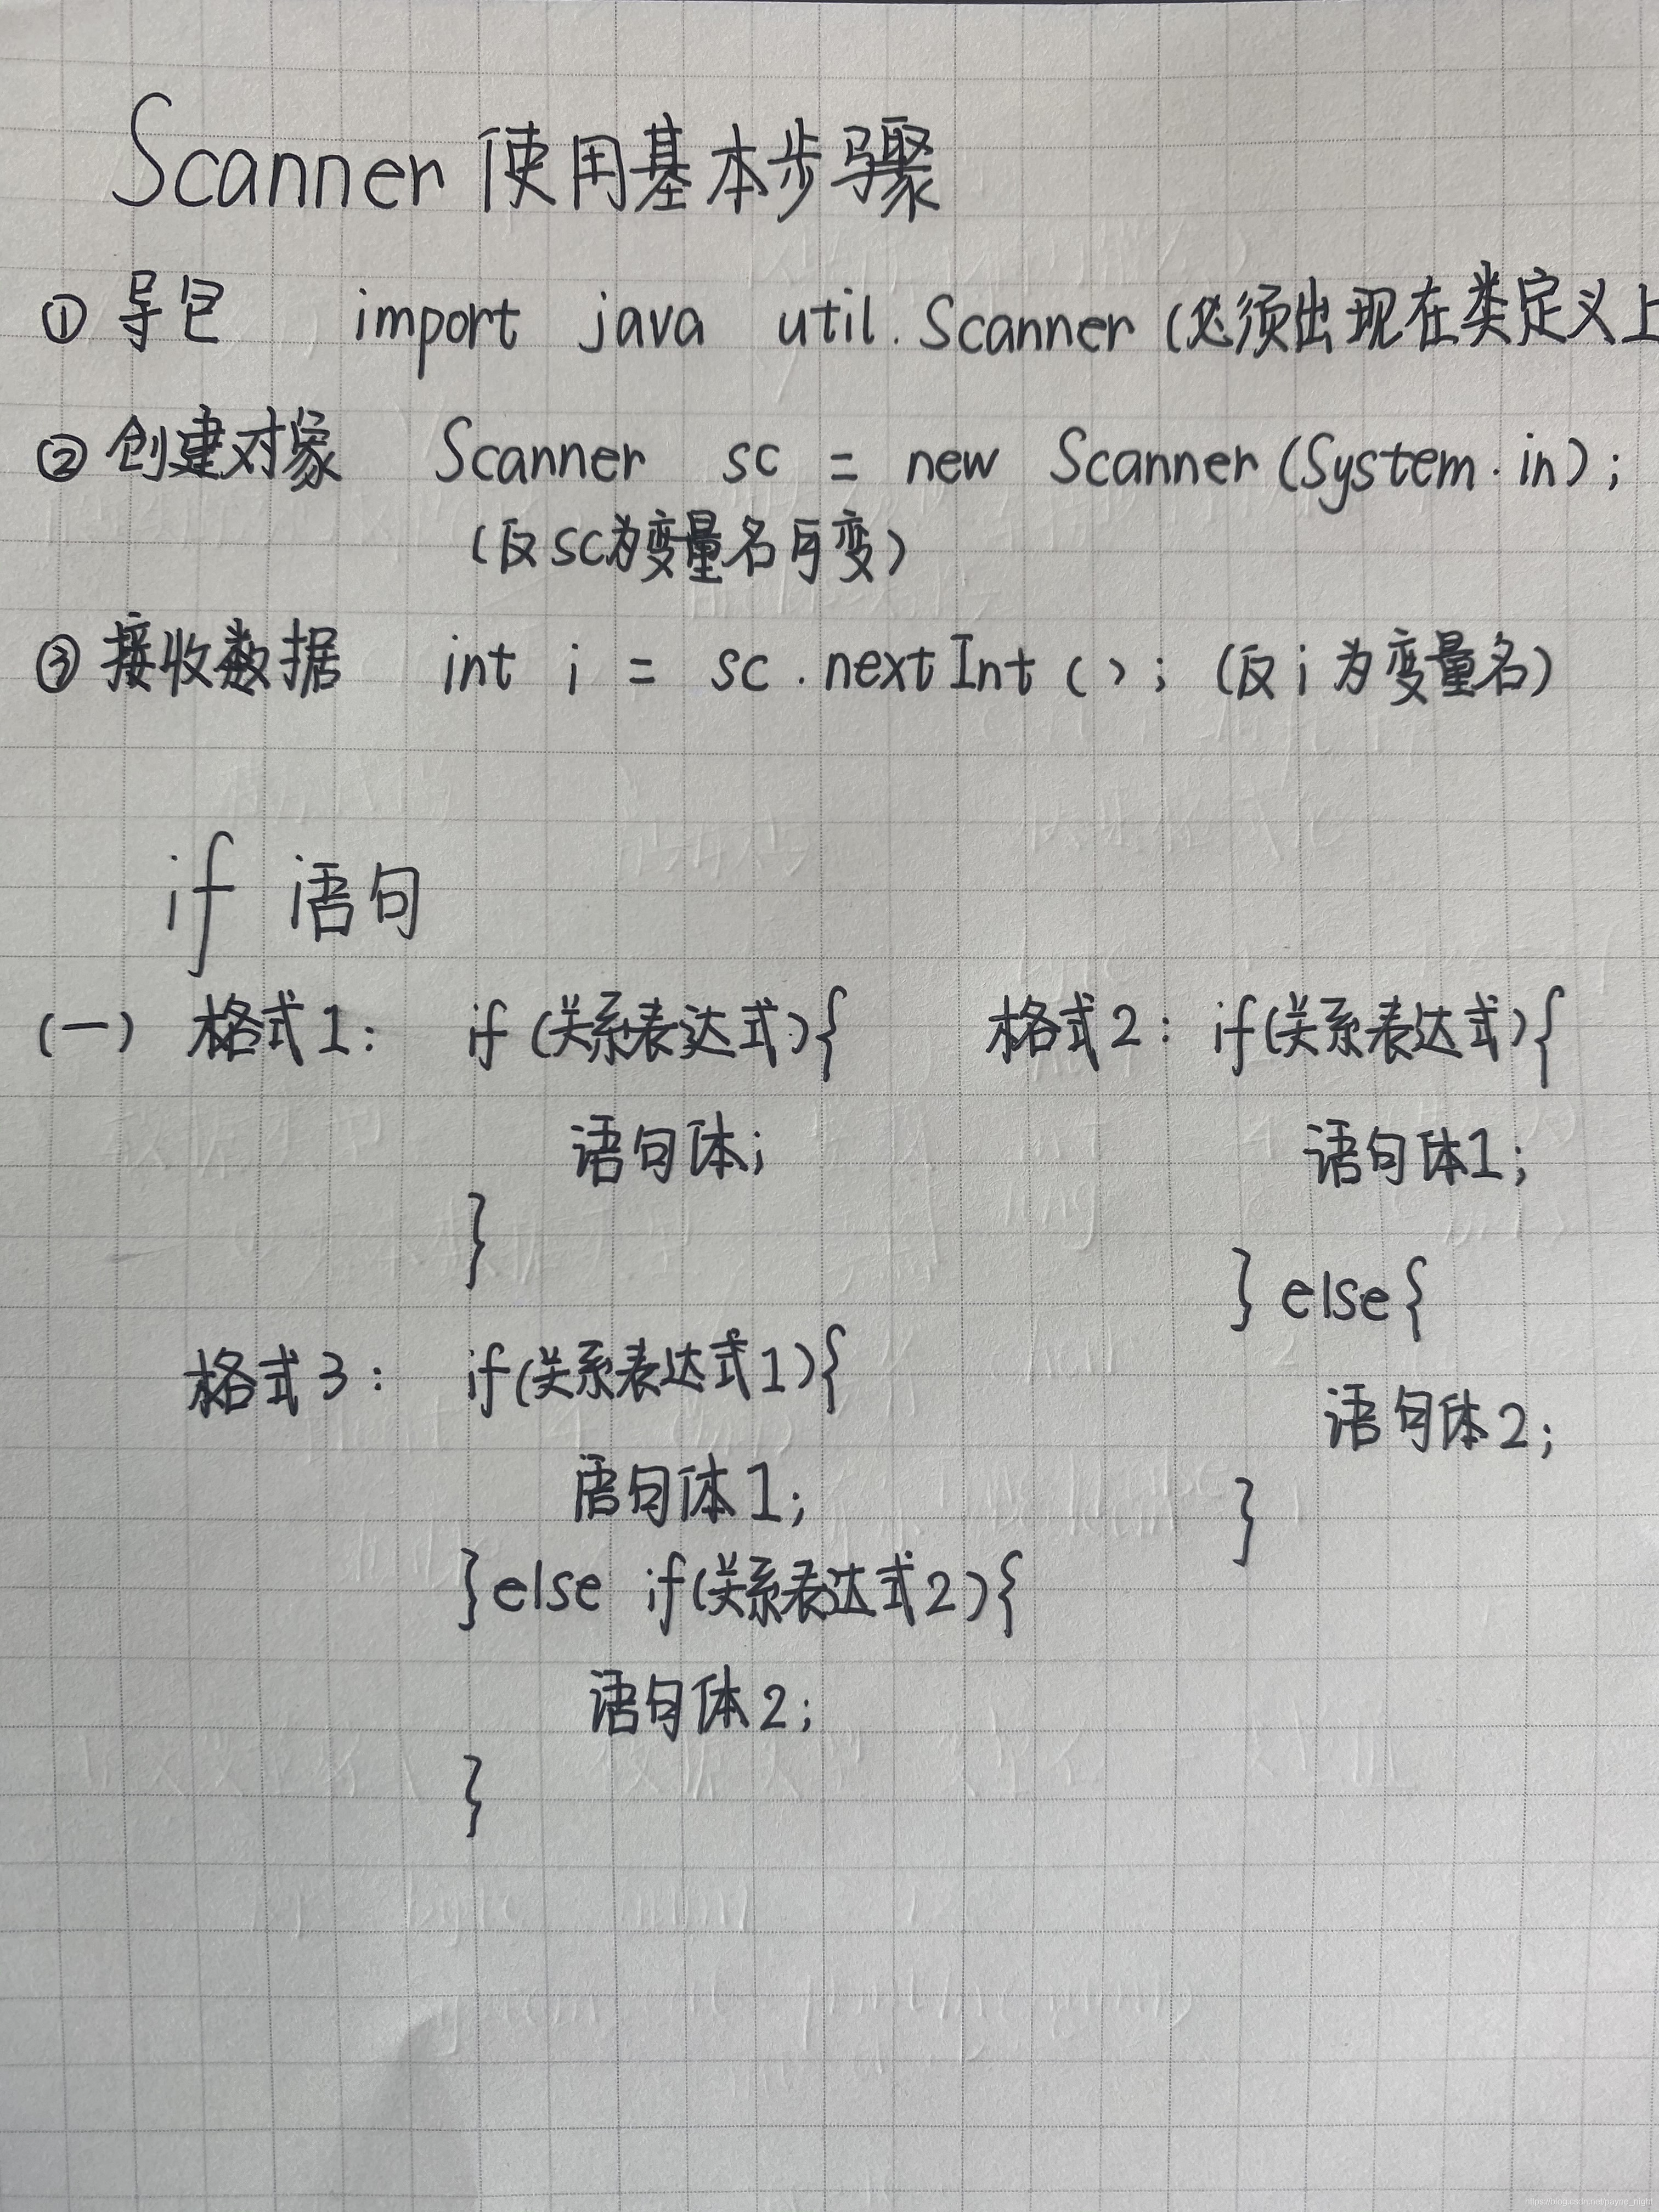 Scanner 使用基本步骤
① 导包 import java util. Scanner (必须出现在类定义上
② 创建对象 Scanner sc = new Scanner (System.in);
(仅sc为变量名可变)
③ 接收数据 int i = sc.nextInt(); (仅i为变量名)
if 语句
(一) 格式1: if (关系表达式){
语句体;
}
格式2: if(关系表达式){
语句体1;
} else{
语句体2;
}
格式3: if(关系表达式1){
语句体1;
}else if(关系表达式2){
语句体2;
}